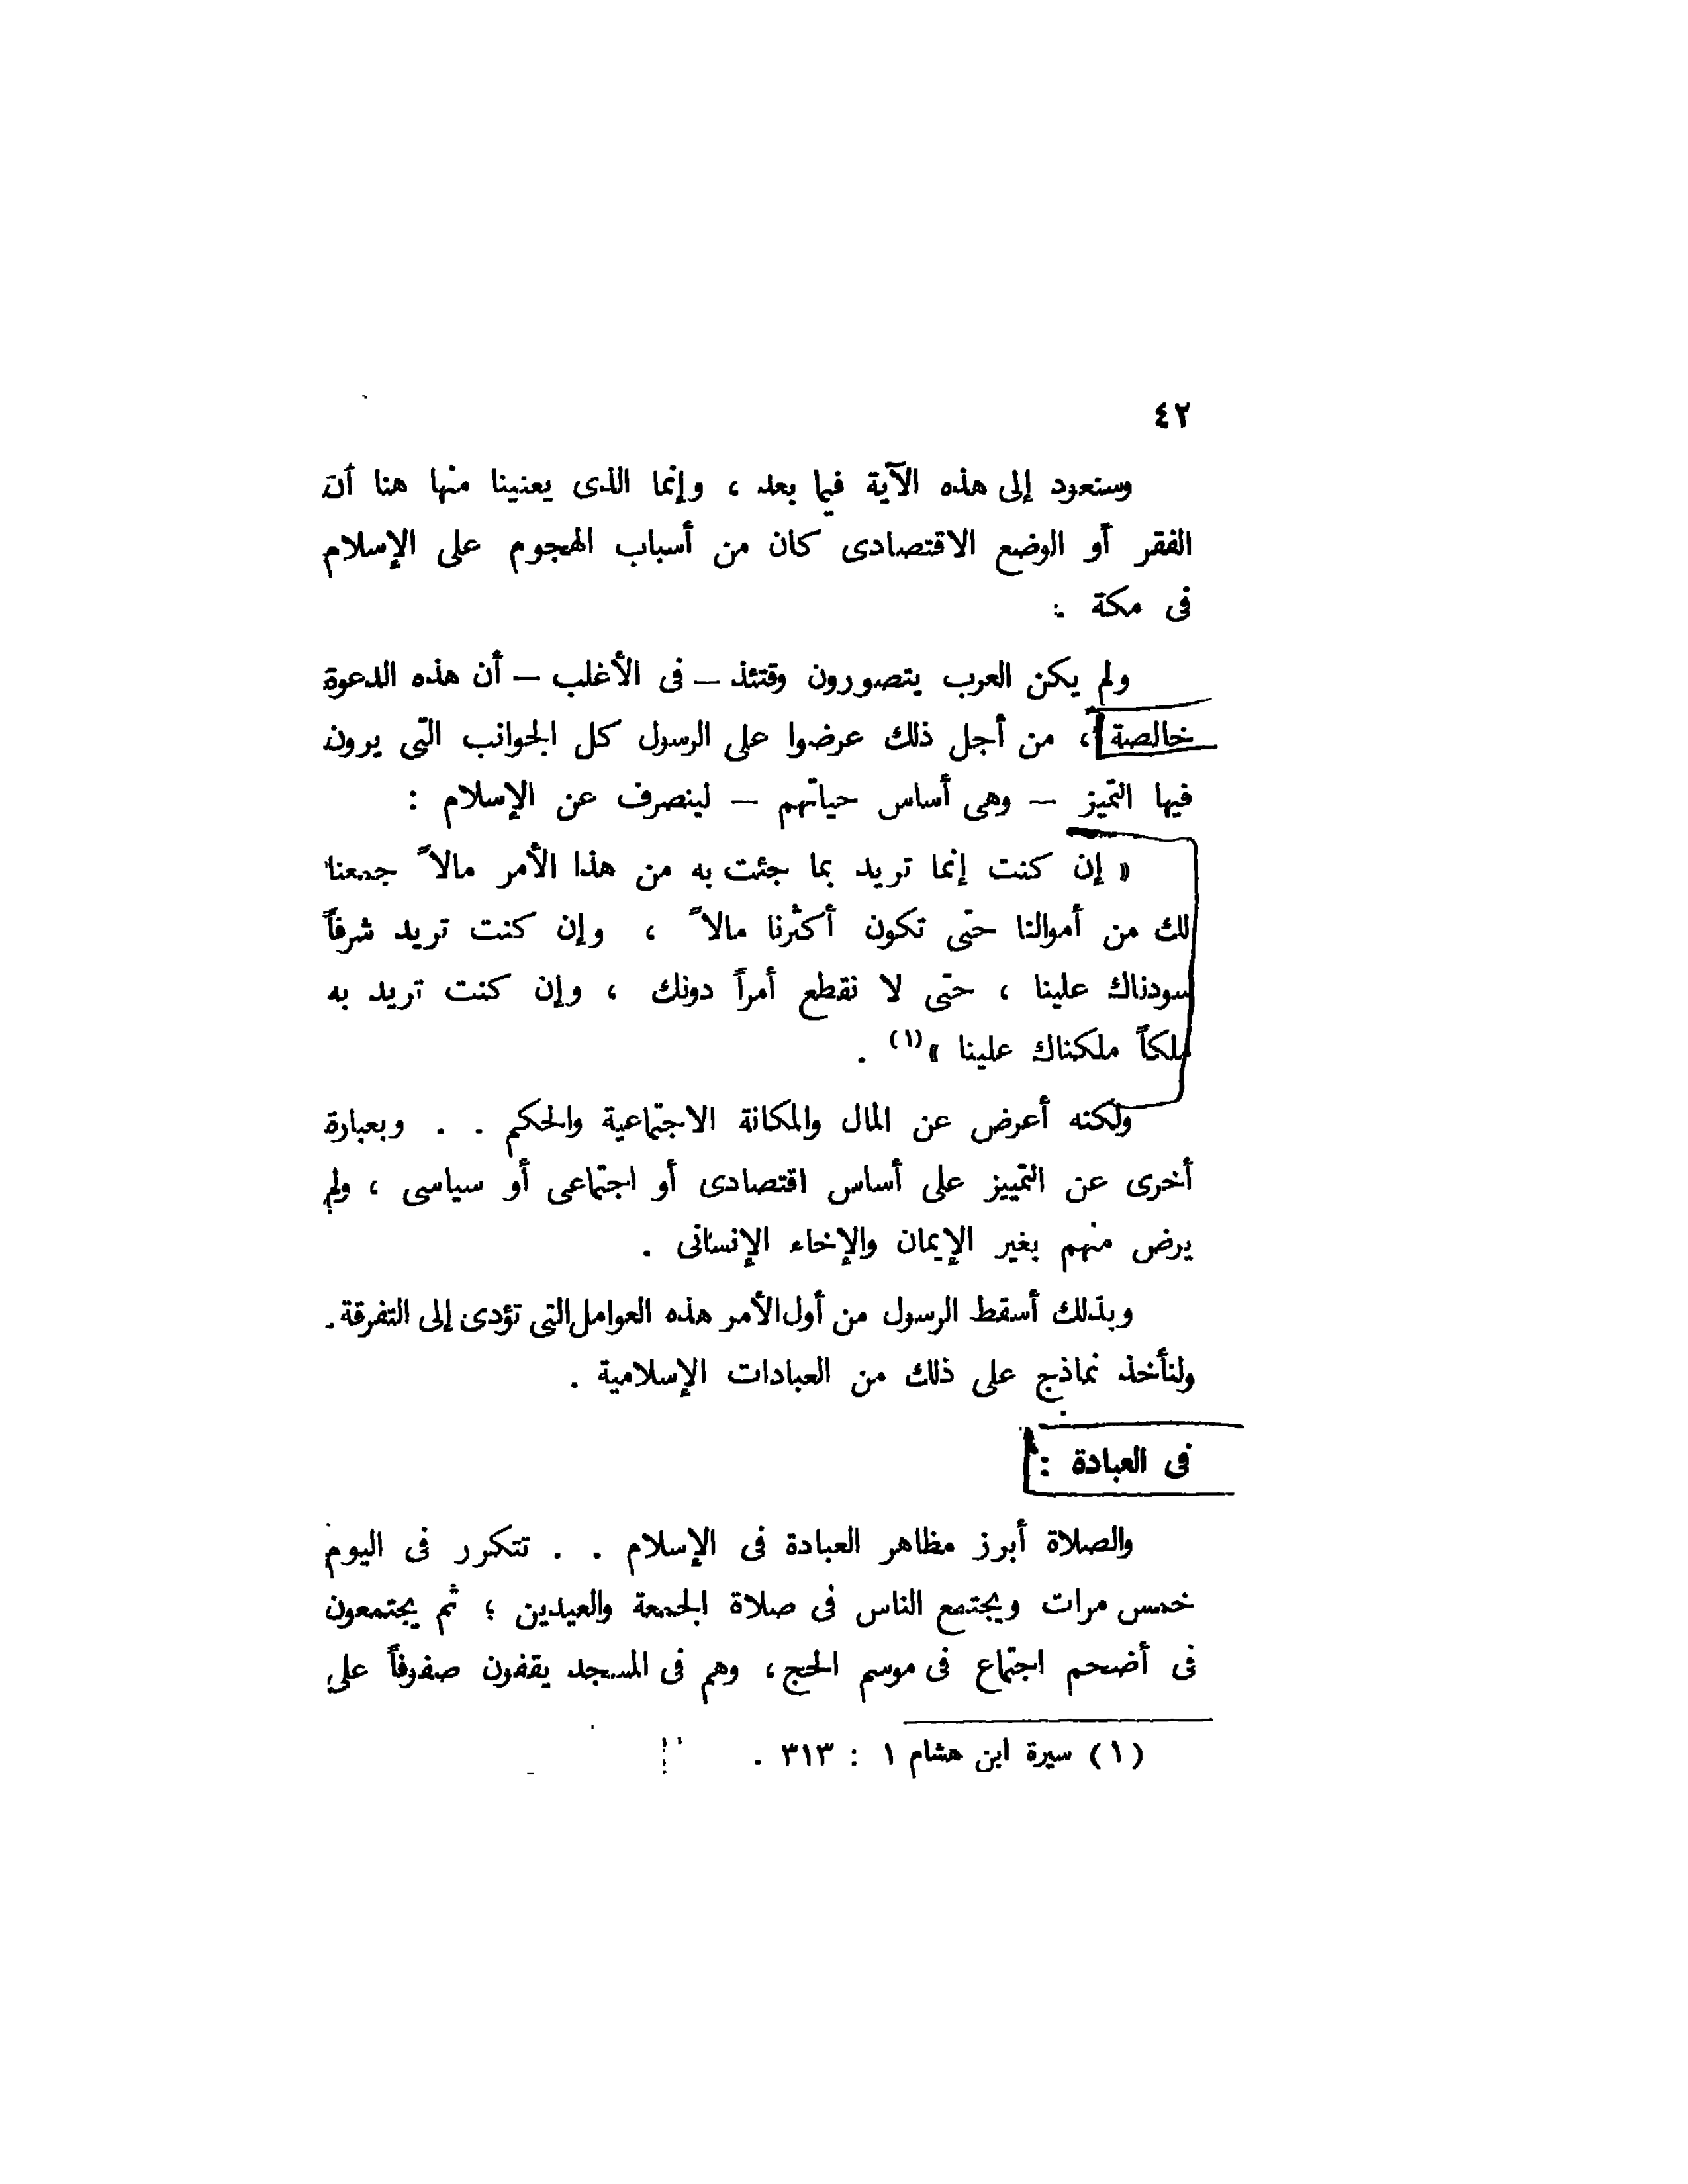 ٤٢
وسنعود إلى هذه الآية فيما بعد ، وإنما الذى يعنينا منها هنا أن
الفقر أو الوضع الاقتصادى كان من أسباب الهجوم على الإسلام
فى مكة .
ولم يكن العرب يتصورون وقتئذ – فى الأغلب – أن هذه الدعوة
خالصة ، من أجل ذلك عرضوا على الرسول كل الجوانب التى يرون
فيها التميز – وهى أساس حياتهم – لينصرف عن الإسلام :
« إن كنت إنما تريد بما جئت به من هذا الأمر مالاً جمعنا
لك من أموالنا حتى تكون أكثرنا مالاً ، وإن كنت تريد شرفاً
سودناك علينا ، حتى لا نقطع أمراً دونك ، وإن كنت تريد به
ملكاً ملكناك علينا »(١) .
ولكنه أعرض عن المال والمكانة الاجتماعية والحكم . . وبعبارة
أخرى عن التمييز على أساس اقتصادى أو اجتماعى أو سياسى ، ولم
يرض منهم بغير الإيمان والإخاء الإنسانى .
وبذلك أسقط الرسول من أول الأمر هذه العوامل التى تؤدى إلى التفرقة .
ولنأخذ نماذج على ذلك من العبادات الإسلامية .
فى العبادة :
والصلاة أبرز مظاهر العبادة فى الإسلام . . تتكرر فى اليوم
خمس مرات ويجتمع الناس فى صلاة الجمعة والعيدين ؛ ثم يجتمعون
فى أضحم اجتماع فى موسم الحج ، وهم فى المسجد يقفون صفوفاً على
(١) سيرة ابن هشام ١ : ٣١٣ .